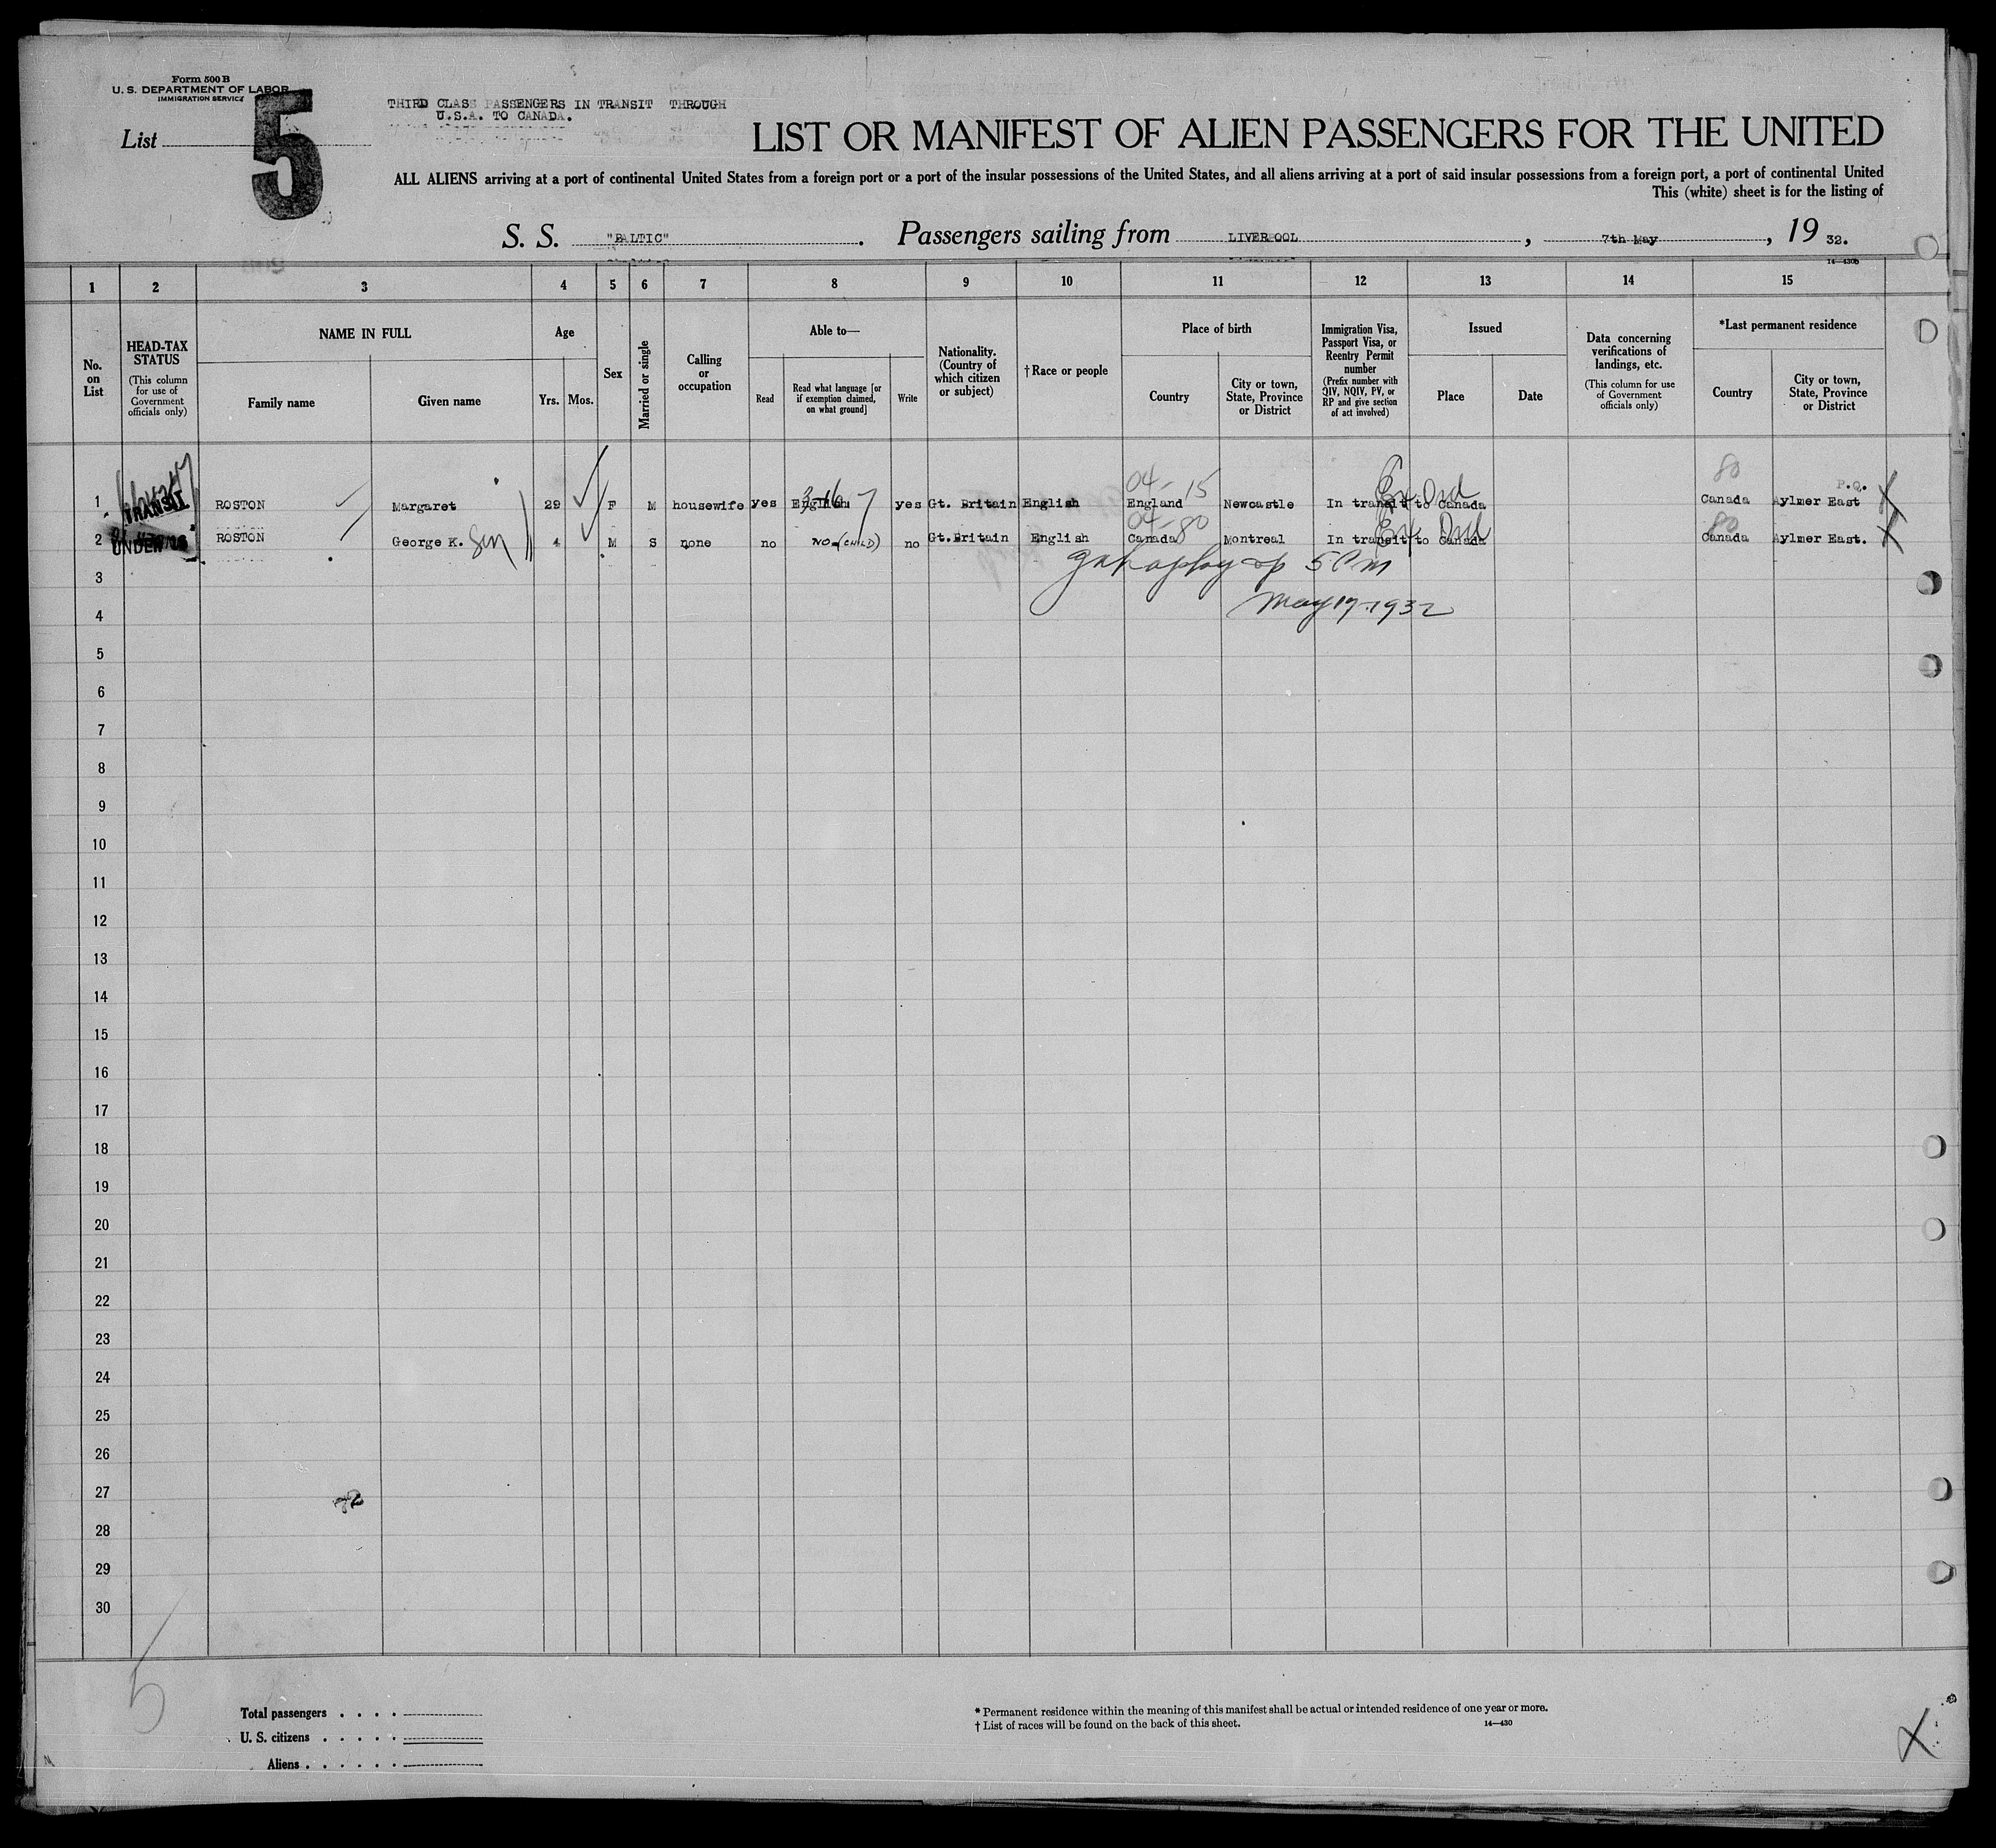 Form 500 B
U. S. DEPARTMENT OF LABOR
IMMIGRATION SERVICE
List 5
THIRD CLASS PASSENGERS IN TRANSIT THROUGH
U.S.A. TO CANADA.
LIST OR MANIFEST OF ALIEN PASSENGERS FOR THE UNITED
ALL ALIENS arriving at a port of continental United States from a foreign port or a port of the insular possessions of the United States, and all aliens arriving at a port of said insular possessions from a foreign port, a port of continental United
This (white) sheet is for the listing of
S. S. "BALTIC" . Passengers sailing from LIVERPOOL , 7th May , 19 32.
14—430b
1 2 3 4 5 6 7 8 9 10 11 12 13 14 15
No. on List
HEAD-TAX STATUS
(This column for use of Government officials only)
NAME IN FULL
Family name
Given name
Age
Yrs. Mos.
Sex
Married or single
Calling or occupation
Able to—
Read
Read what language [or if exemption claimed, on what ground]
Write
Nationality. (Country of which citizen or subject)
† Race or people
Place of birth
Country
City or town, State, Province or District
Immigration Visa, Passport Visa, or Reentry Permit number
(Prefix number with QIV, NQIV, PV, or RP and give section of act involved)
Issued
Place
Date
Data concerning verifications of landings, etc.
(This column for use of Government officials only)
*Last permanent residence
Country
City or town, State, Province or District
04-15 80
P.Q.
1 TRANSIT ROSTON Margaret 29 F M housewife yes English 3-16 yes Gt. Britain English England Newcastle In transit to Canada Canada Aylmer East
04-80 80
2 UNDER 16 ROSTON George K. M S 4 none no NO (CHILD) no Gt.Britain English Canada Montreal In transit to Canada Canada Aylmer East.
3
May 19-1932
4
5
6
7
8
9
10
11
12
13
14
15
16
17
18
19
20
21
22
23
24
25
26
27
28
29
30
5
Total passengers . . . .
U. S. citizens . . . . .
Aliens . . . . . .
* Permanent residence within the meaning of this manifest shall be actual or intended residence of one year or more.
† List of races will be found on the back of this sheet. 14—430
X